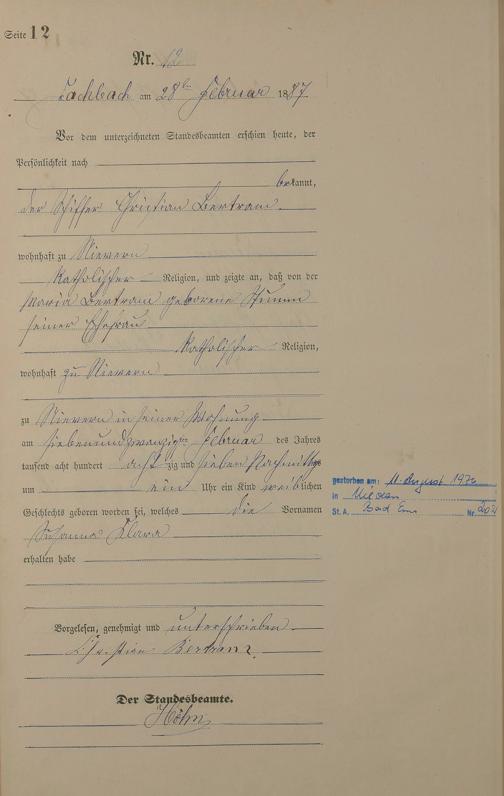 Seite 12
Nr. 12
Fachbach am 28ten Februar 1887
Vor dem unterzeichneten Standesbeamten erschien heute, der
Persönlichkeit nach
bekannt,
der Schiffer Christian Bertram
wohnhaft zu Nievern
katholischer Religion, und zeigte an, daß von der
Maria Bertram geborene Stumm
seiner Ehefrau
katholischer Religion,
wohnhaft zu Nievern
zu Nievern in seiner Wohnung
am siebenundzwanzigten Februar des Jahres
tausend acht hundert achtzig und sieben Nachmittags
um ein Uhr ein Kind weiblichen
Geschlechts geboren worden sei, welches die Vornamen
Susanna Klara
erhalten habe
gestorben am: 11. August
in Nievern
St. A. Bad Ems Nr.
Vorgelesen, genehmigt und unterschrieben
Christian Bertram
Der Standesbeamte.
Höhn